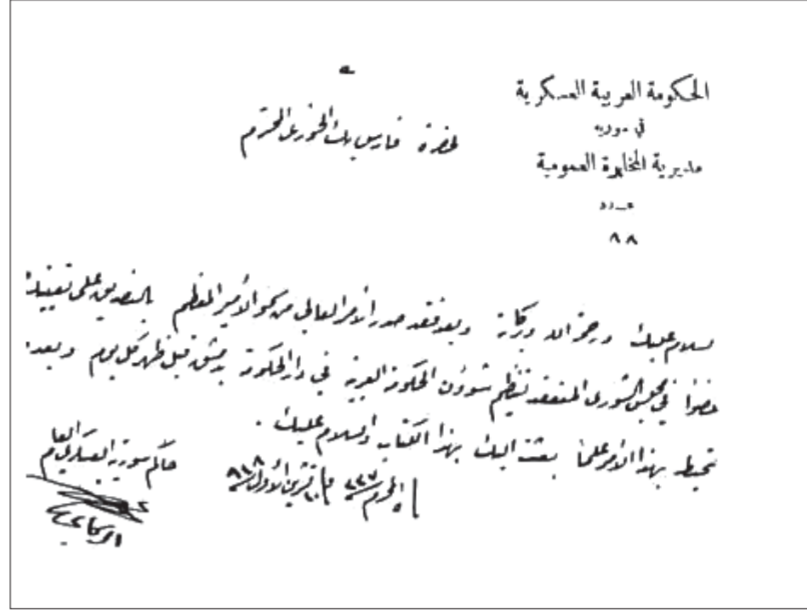 الحكومة العربية العسكرية
في سورية
مديرية المخابرة العمومية
عدد
٨٨
لحضرة فارس بك الخوري المحترم
السلام عليك ورحمة الله وبركاته وبعد فقد صدر الأمر العالي من سمو الأمير المعظم بالتصديق على تعيينك
عضوا في مجلس الشورى المنعقد لتنظيم شؤون الحكومة العربية في دار الحكومة بدمشق قبل ظهر كل يوم وبعده
لتحيط بهذا الأمر علما بعثت اليك بهذا الكتاب والسلام عليك .
المحرم ٣٣٧ تشرين الأول ٩١٨
حاكم سورية العسكري العام
الركابي